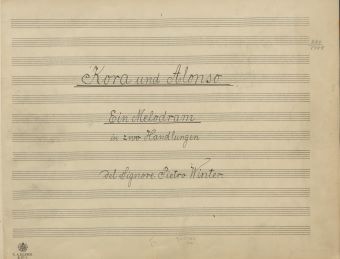 Kora und Alonso
Ein Melodram
in zwo Handlungen
del Signore Pietro Winter